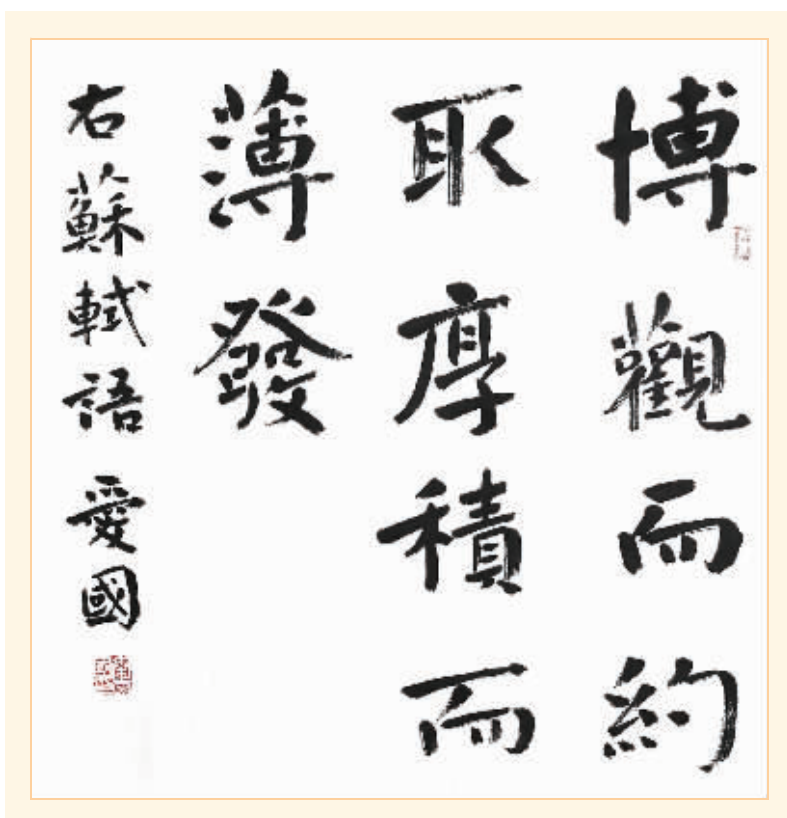 博觀而約
取厚積而
薄發
右蘇軾語 愛國